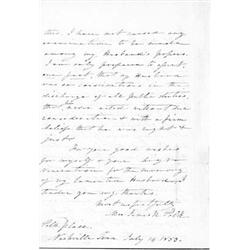 this. I have not caused any
examination to be made
among my Husband's papers.
I am only prepared to assert,
on my part, that my Husband
was so conscientious in the
discharge of all public duties,
that he never acted without due
consideration & with a firm
belief that he was right &
just.
For your good wishes
for myself & your
for the memory
of my lamented Husband I
tender you my thanks.
Most respectfully
Mrs James K. Polk
Polk place.
Nashville Tenn July 14 1883.